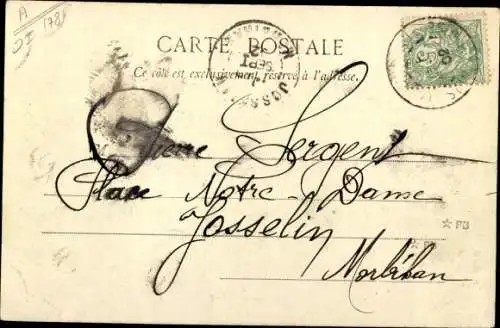 A
178
CARTE POSTALE
Ce côté est exclusivement réservé à l'adresse.
JOSSELIN
SEPT
Pierre Sergent
Place Notre-Dame
Josselin
Morbihan